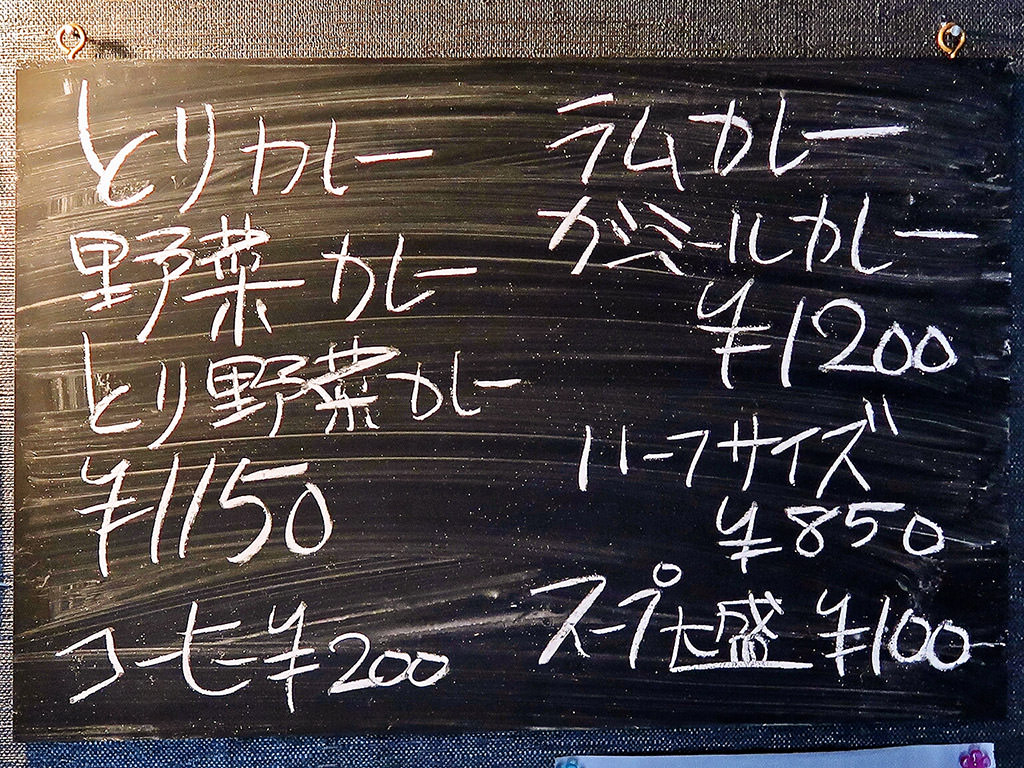 とりカレー
野菜カレー
とり野菜カレー
¥1150
コーヒー¥200
ラムカレー
カシミールカレー
¥1200
ハーフサイズ
¥850
スープ大盛 ¥100